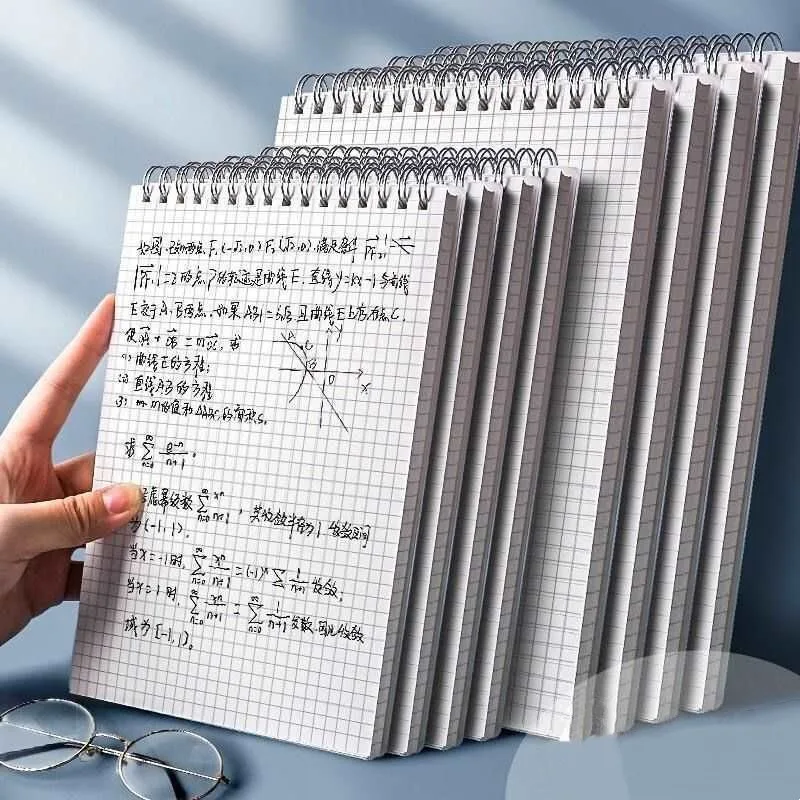 如图,已知两点 F₁(-√2,0) F₂(√2,0),满足条件 |PF₂|
|PF₁|=2的点P的轨迹是曲线E,直线y=kx-1与曲线
E交于A、B两点,如果|AB|=6√3,且曲线E上存在点C,
使OA+OB=mOC,求
(1)曲线E的方程;
(2)直线AB的方程
(3)m的值和△ABC的面积S。
A C y
B O x
求 ∑ n=0 ∞ e^-n / n+1 。
考虑幂级数 ∑ n=0 ∞ xⁿ / n+1 ,其收敛半径为1 收敛区间
为(-1,1)。
当x=-1时, ∑ n=0 ∞ xⁿ / n+1 = (-1)ⁿ ∑ 1 / n+1 收敛;
当x=1时, ∑ n=0 ∞ xⁿ / n+1 = ∑ n=0 ∞ 1 / n+1 发散,因此收敛
域为[-1,1)。